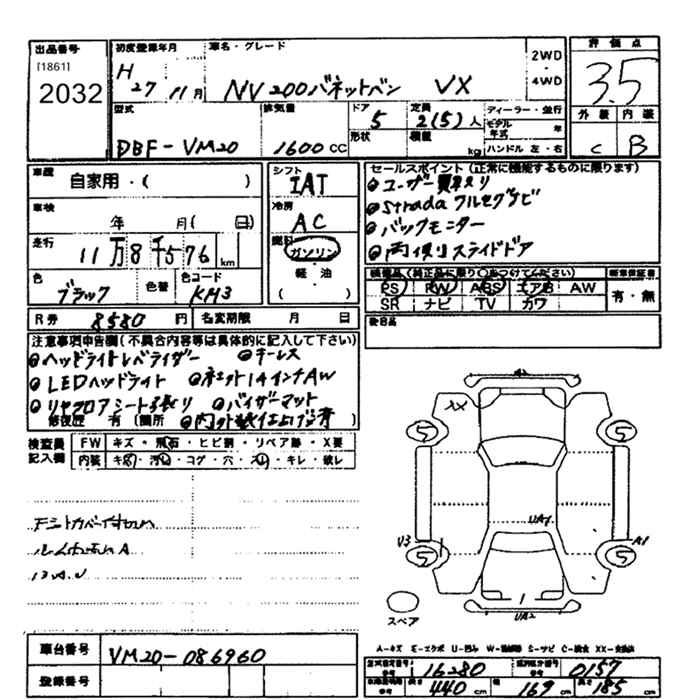 出品番号
[1861]
2032
初度登録年月
H 27 11月
車名・グレード
NV200バネットバン VX
2WD・4WD
評価点
3.5
外装 内装
C B
型式
DBF-VM20
排気量
1600 CC
ドア
5
形状
定員
2(5)人
積載
kg
ディーラー・並行
モデル年式 年
ハンドル 左・右
車歴
自家用・( )
シフト
IAT
冷房
AC
燃料
ガソリン
軽・油
( )
車検
年 月( 日)
走行
11万8千576 km
色
ブラック
色替
色コード
KH3
R券 8580円
名変期限 月 日
セールスポイント(正常に機能するものに限ります)
●ユーザー買取り
●strada フルセグナビ
●バックモニター
●両側スライドドア
装備品(純正品に限り○をつけてください)
PS PW ABS エアB AW
SR ナビ TV カワ
新車保証書
有・無
後日品
注意事項申告欄(不具合内容等は具体的に記入して下さい)
●ヘッドライトレベライザー ●キーレス
●LEDヘッドライト ●社外14インチAW
●リヤフロアシート張り ●バイザーマット
修復歴 有(箇所
検査員記入欄
FW キズ・飛石・ヒビ割・リペア跡・X要
内装 キズ・汚れ・コゲ・穴・スレ・キレ・破レ
XX
5 5
5 5
UA1
U3
A1
UA2
スペア
A-キズ E-エクボ U-凹み W-補修跡 S-サビ C-腐食 XX-交換済
車台番号
VM20-086960
登録番号
型式指定番号 参考 16280
類別区分番号 参考 0157
参考 440 cm
幅 169 cm
高さ 185 cm